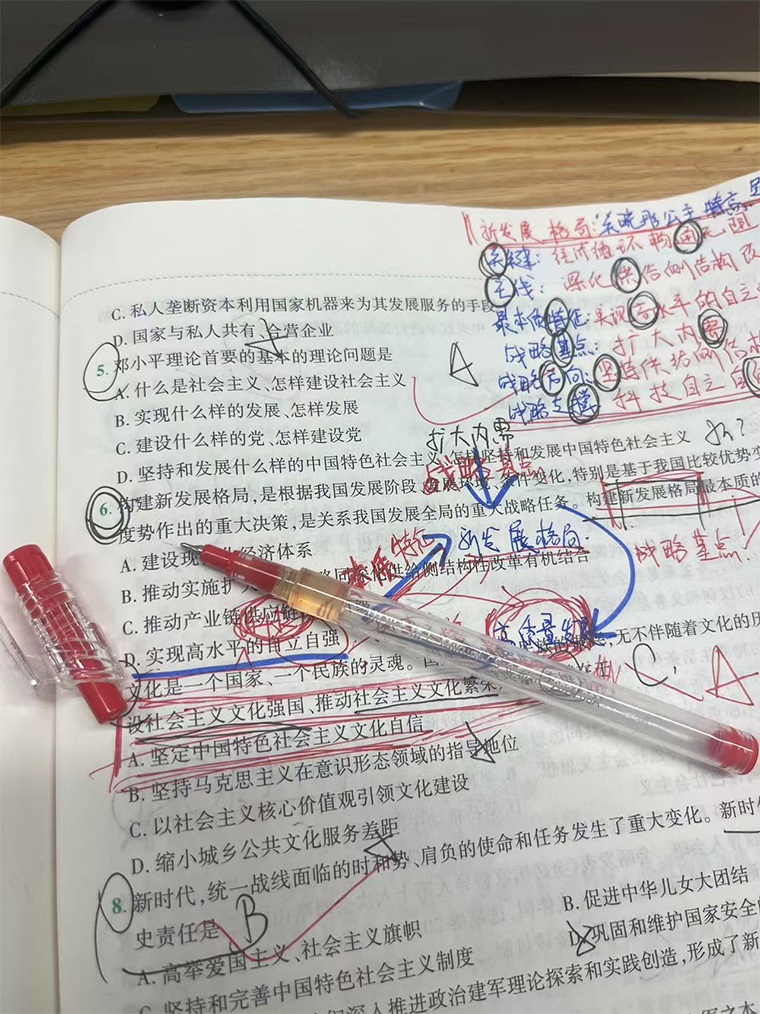 新发展格局:
关键: 经济循环畅通无阻
主线: 深化供给侧结构改
最本质特征: 实现高水平的自立自
战略基点: 扩大内需
战略方向: 坚持供给侧结构
战略支撑: 科技自立自
C. 私人垄断资本利用国家机器来为其发展服务的手段
D. 国家与私人共有、合营企业
5. 邓小平理论首要的基本的理论问题是
A
A. 什么是社会主义、怎样建设社会主义
B. 实现什么样的发展、怎样发展
C. 建设什么样的党、怎样建设党
扩大内需
D. 坚持和发展什么样的中国特色社会主义、怎样坚持和发展中国特色社会主义
战略基点
6. 构建新发展格局,是根据我国发展阶段、发展环境、条件变化,特别是基于我国比较优势变
度势作出的重大决策,是关系我国发展全局的重大战略任务。构建新发展格局最本质的
A. 建设现 化经济体系
新发展格局
战略基点
B. 推动实施扩 同深化供给侧结构性改革有机结合
C. 推动产业链供应链
高质量发
D. 实现高水平的自立自强
族的 无不伴随着文化的历
文化是一个国家、一个民族的灵魂。
C
A
设社会主义文化强国、推动社会主义文化繁荣
A. 坚定中国特色社会主义文化自信
B. 坚持马克思主义在意识形态领域的指导地位
C. 以社会主义核心价值观引领文化建设
D. 缩小城乡公共文化服务差距
8. 新时代,统一战线面临的时和势、肩负的使命和任务发生了重大变化。新时
史责任是
B
A. 高举爱国主义、社会主义旗帜
B. 促进中华儿女大团结
C. 坚持和完善中国特色社会主义制度
D. 巩固和维护国家安全的
们深入推进政治建军理论探索和实践创造,形成了新